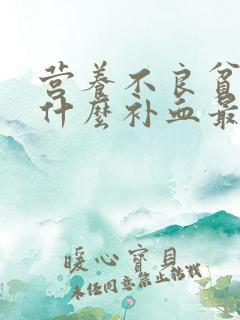 营养不良贫
什麽补血最
暖心宝贝
未经同意禁止转载